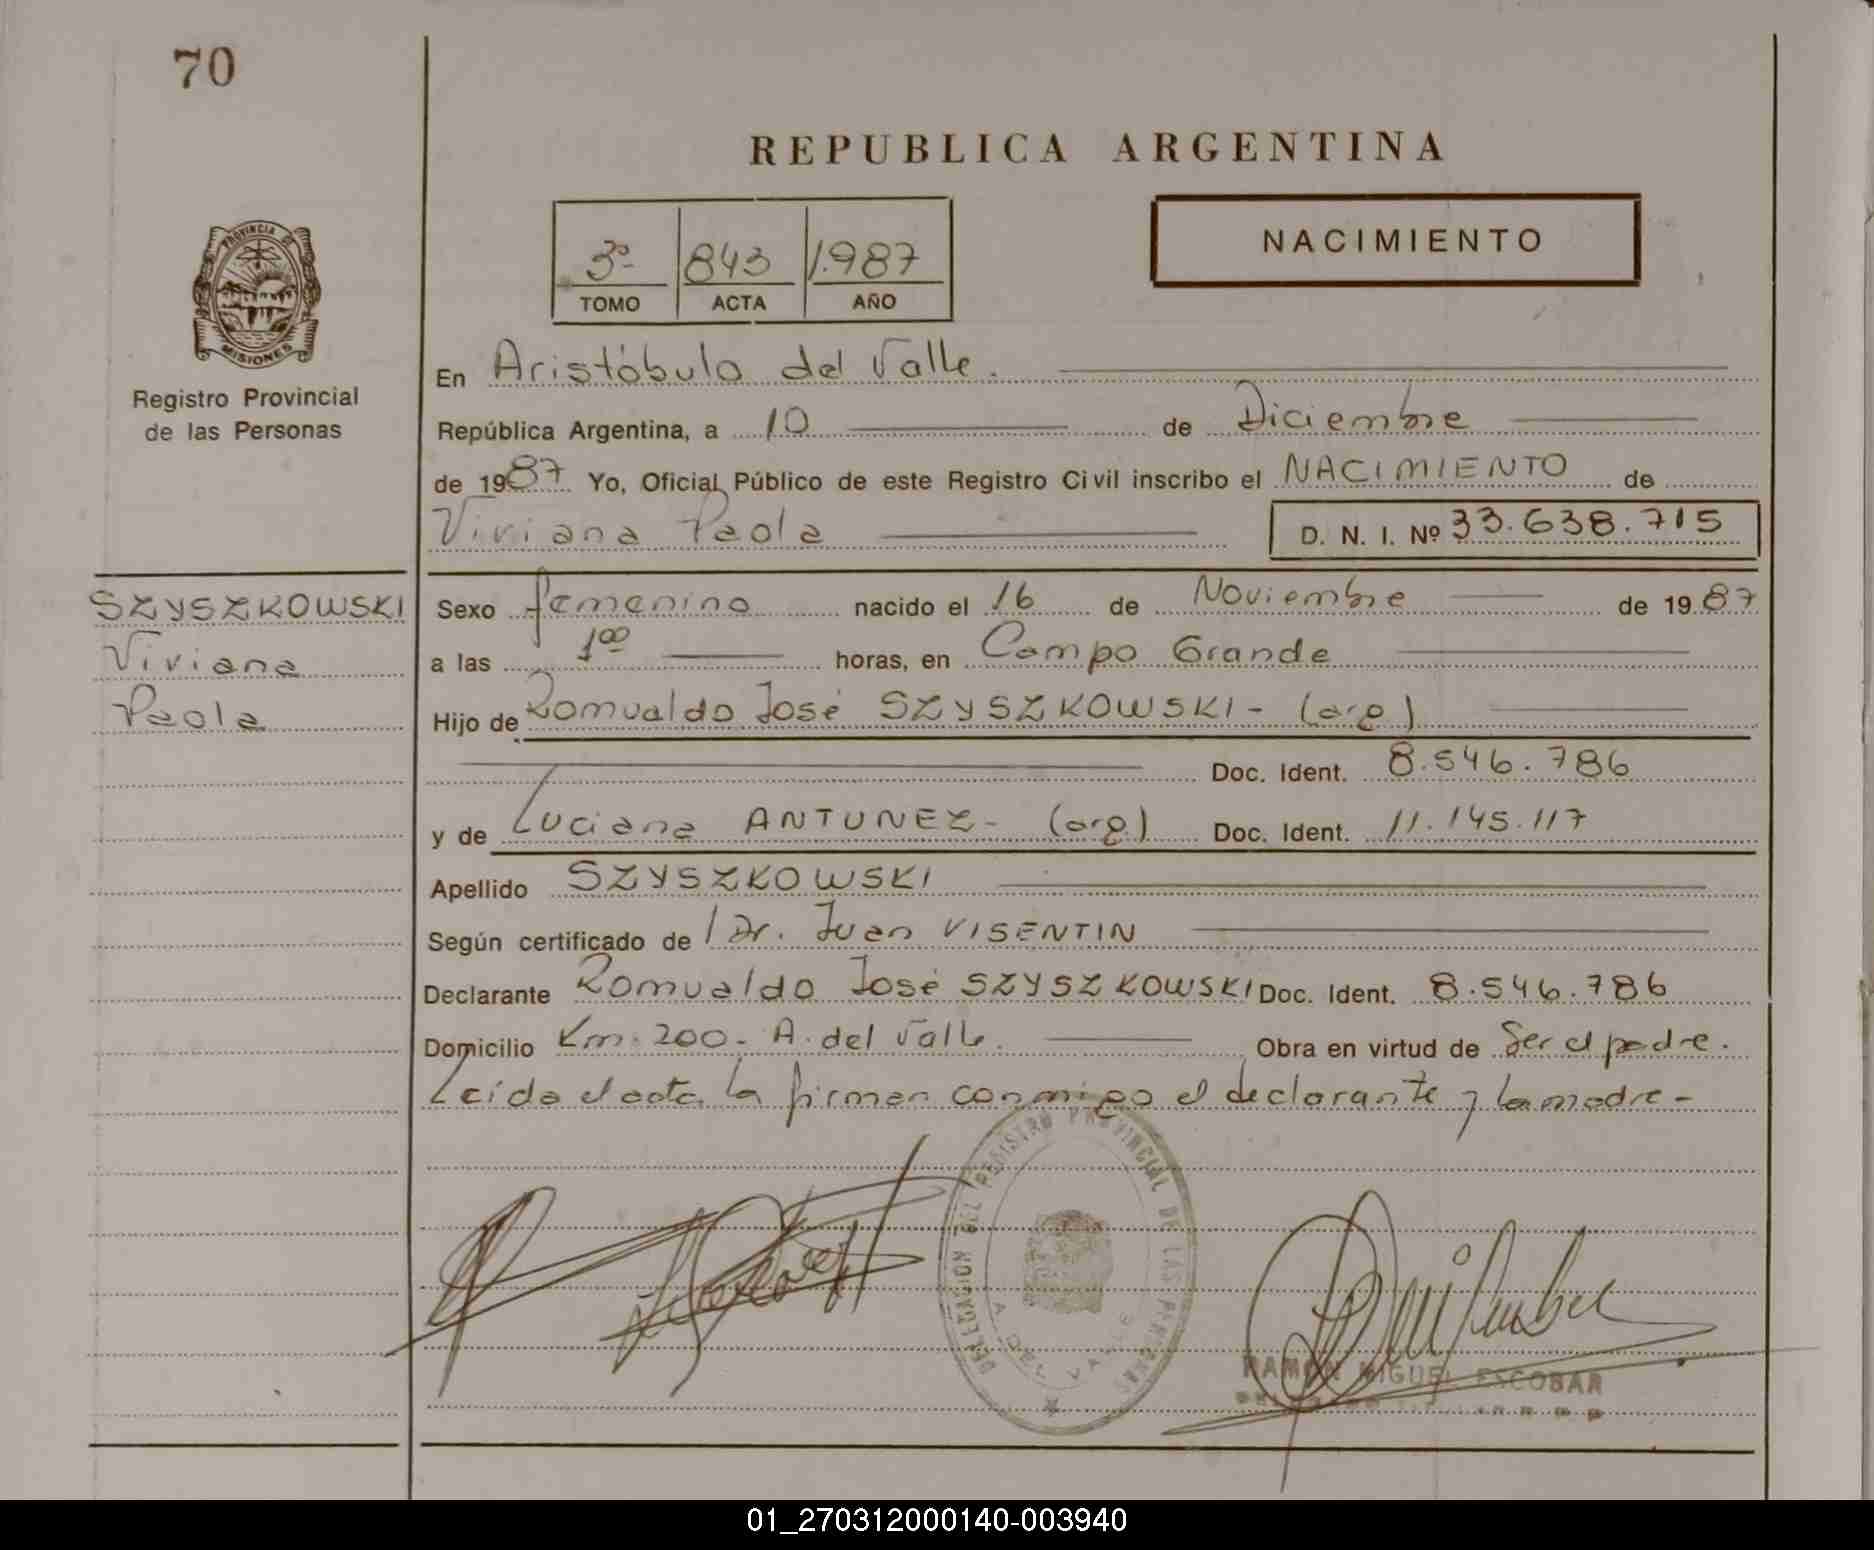 70
REPUBLICA ARGENTINA
3º- 843 1.987
TOMO ACTA AÑO
NACIMIENTO
PROVINCIA DE
MISIONES
Registro Provincial
de las Personas
En Aristóbulo del Valle.
República Argentina, a 10 de Diciembre
de 1987 Yo, Oficial Público de este Registro Civil inscribo el NACIMIENTO de
Viviana Paola D. N. I. Nº 33.638.715
SZYSZKOWSKI
Viviana
Paola
Sexo femenino nacido el 16 de Noviembre de 1987
a las 100 horas, en Campo Grande
Hijo de Romualdo José SZYSZKOWSKI- (arg)
Doc. Ident. 8.546.786
y de Luciana ANTUNEZ- (arg) Doc. Ident. 11.145.117
Apellido SZYSZKOWSKI
Según certificado de Dr. Juan VISENTIN
Declarante Romualdo José SZYSZKOWSKI Doc. Ident. 8.546.786
Domicilio Km. 200- A. del Valle. Obra en virtud de Ser el padre.
Leída el acta la firman conmigo el declarante y la madre-
DELEGACION DEL REGISTRO PROVINCIAL DE LAS PERSONAS
A. DEL VALLE
RAMON MIGUEL ESCOBAR
01_270312000140-003940